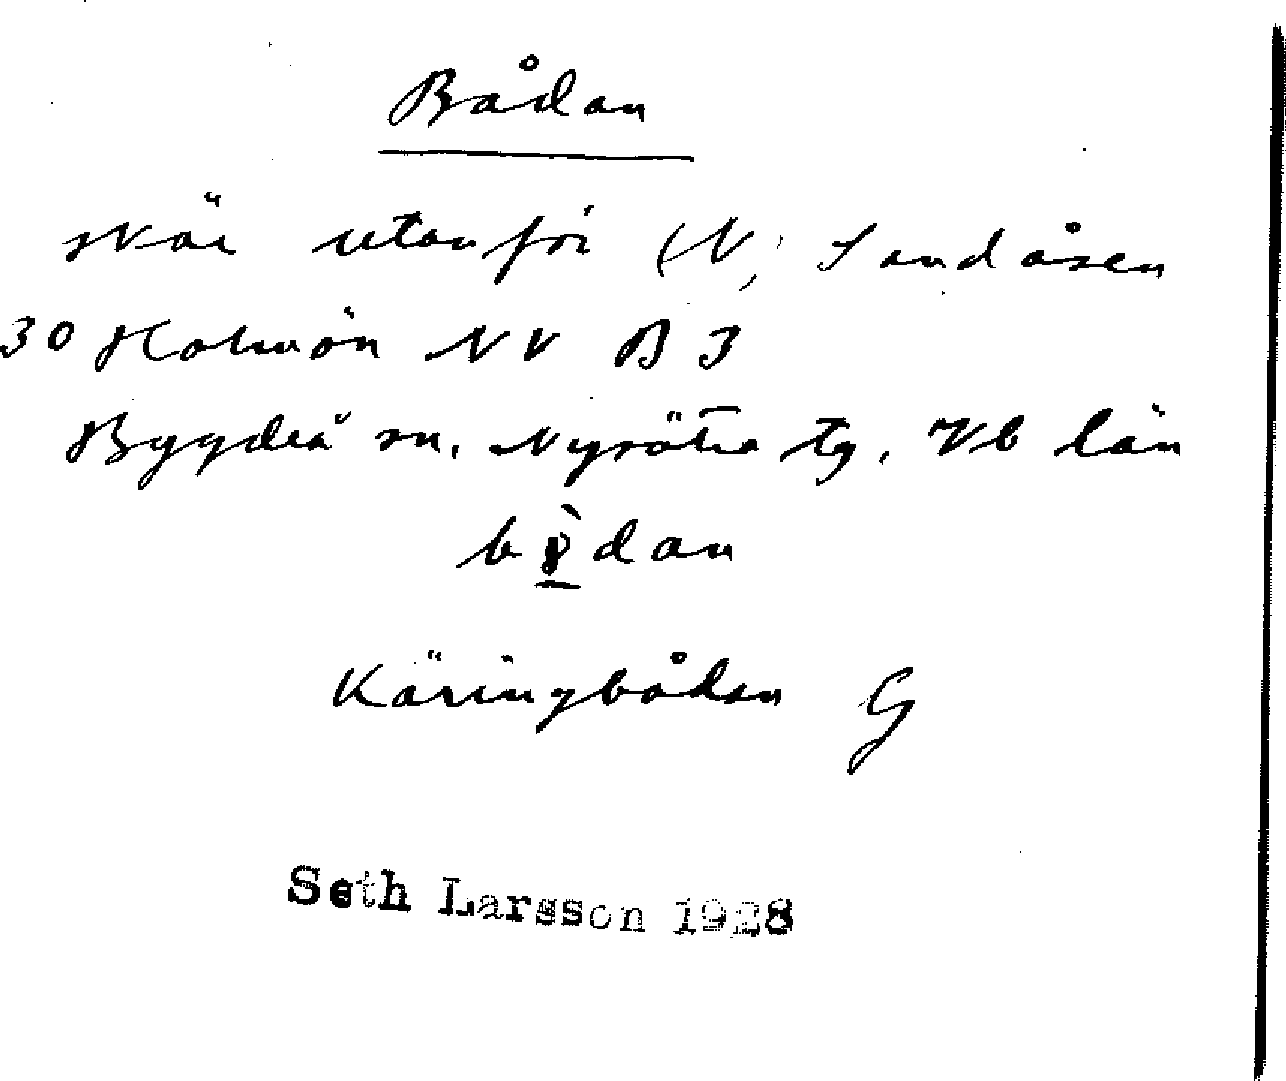 Bådan
skär utanför (N, Sandåsen
30 Holmön NV B 3
Bygdeå sn. Nysätra tg. Vb län
bådan
Käringbådan G
Seth Larsson 1928